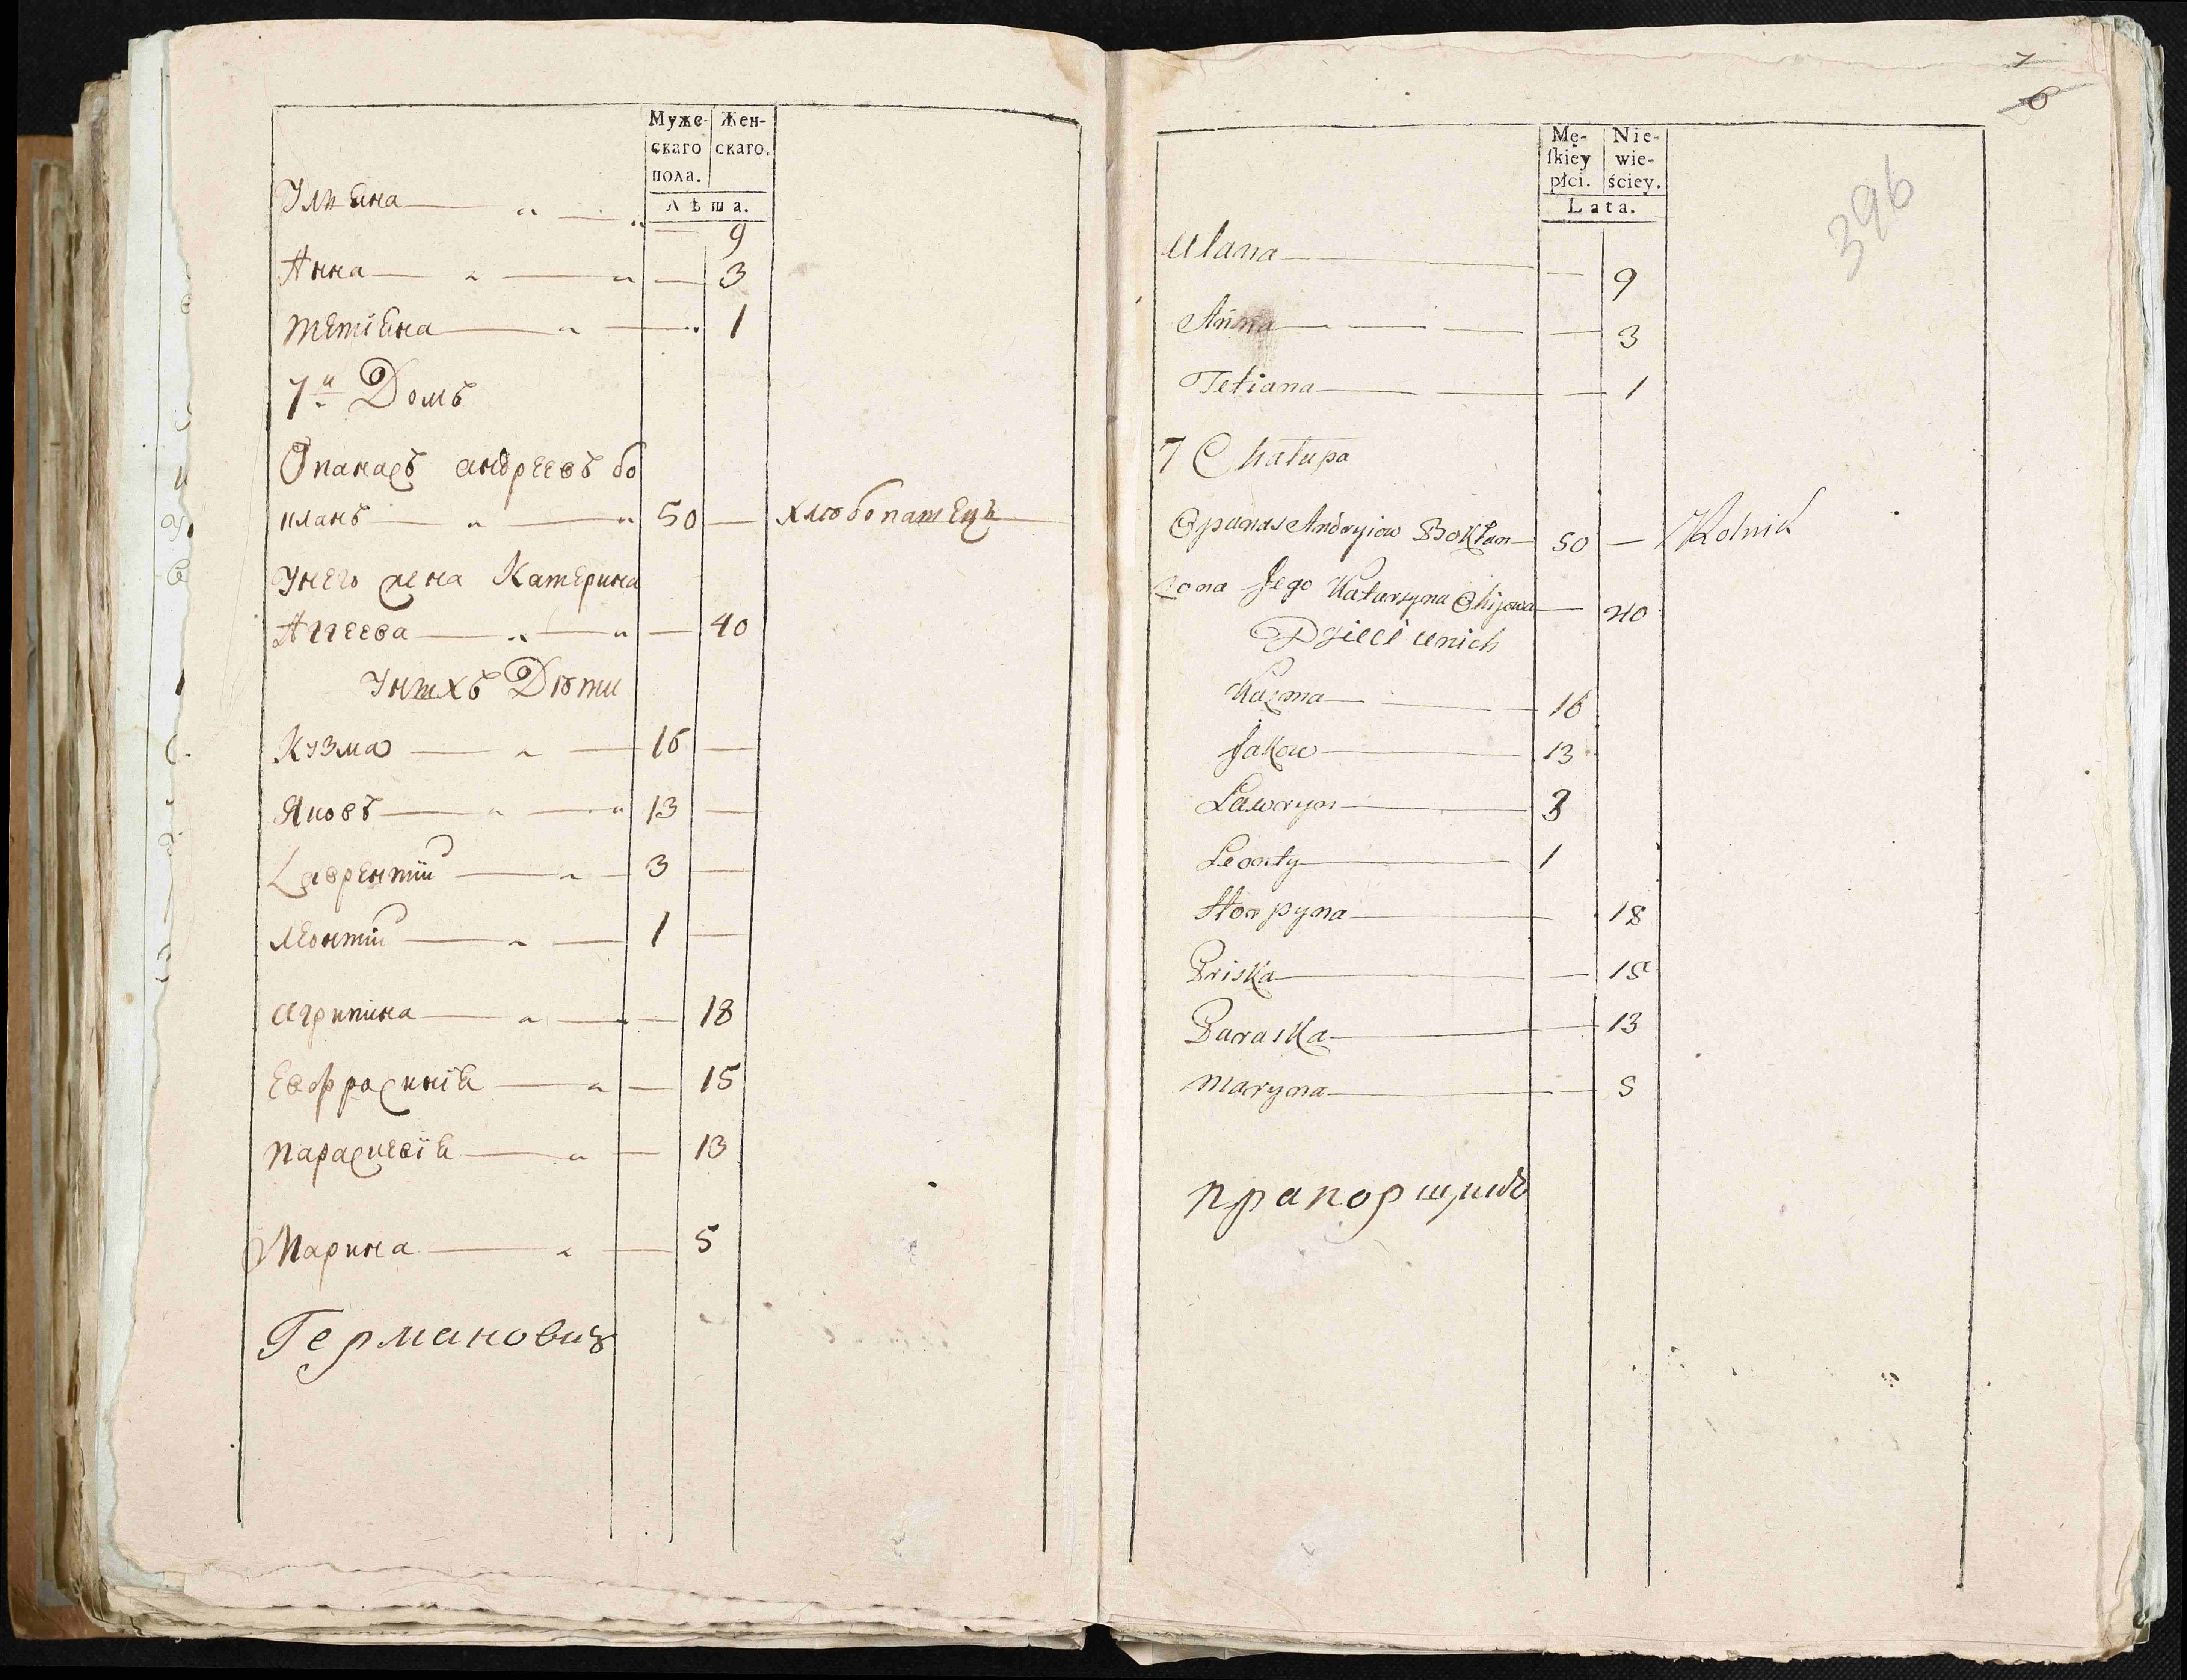 Муже- Жен-
скаго скаго.
пола.
Лѣта.
Улиана 9
Анна 3
Тетіана 1
7й Домъ
Опанасъ андреевъ бо
кланъ 50 — хлѣбопашецъ
Унего жена Катерина
Аггеева — 40
Унихъ Дѣти
Кузма 16 —
Яковъ 13 —
Лаврентій 3 —
Леонтій 1 —
агрипина — 18
Евфросиніа — 15
Параскевіа — 13
Марина — 5
Германович
7
6
396
Mę- Nie-
skiey wie-
płci. ściey.
Lata.
Ulana — 9
Anna — 3
Tetiana — 1
7 Chałupa
Opanas Andryiow Bokłan 50 — Rolnik
Zona Jego Katarzyna — 40
Dzieci unich
Kuzma 16
Jakow 13
Lawryn 3
Leonty 1
Horpyna 18
Priska — 15
Paraska — 13
Maryna — 5
прапорщикъ